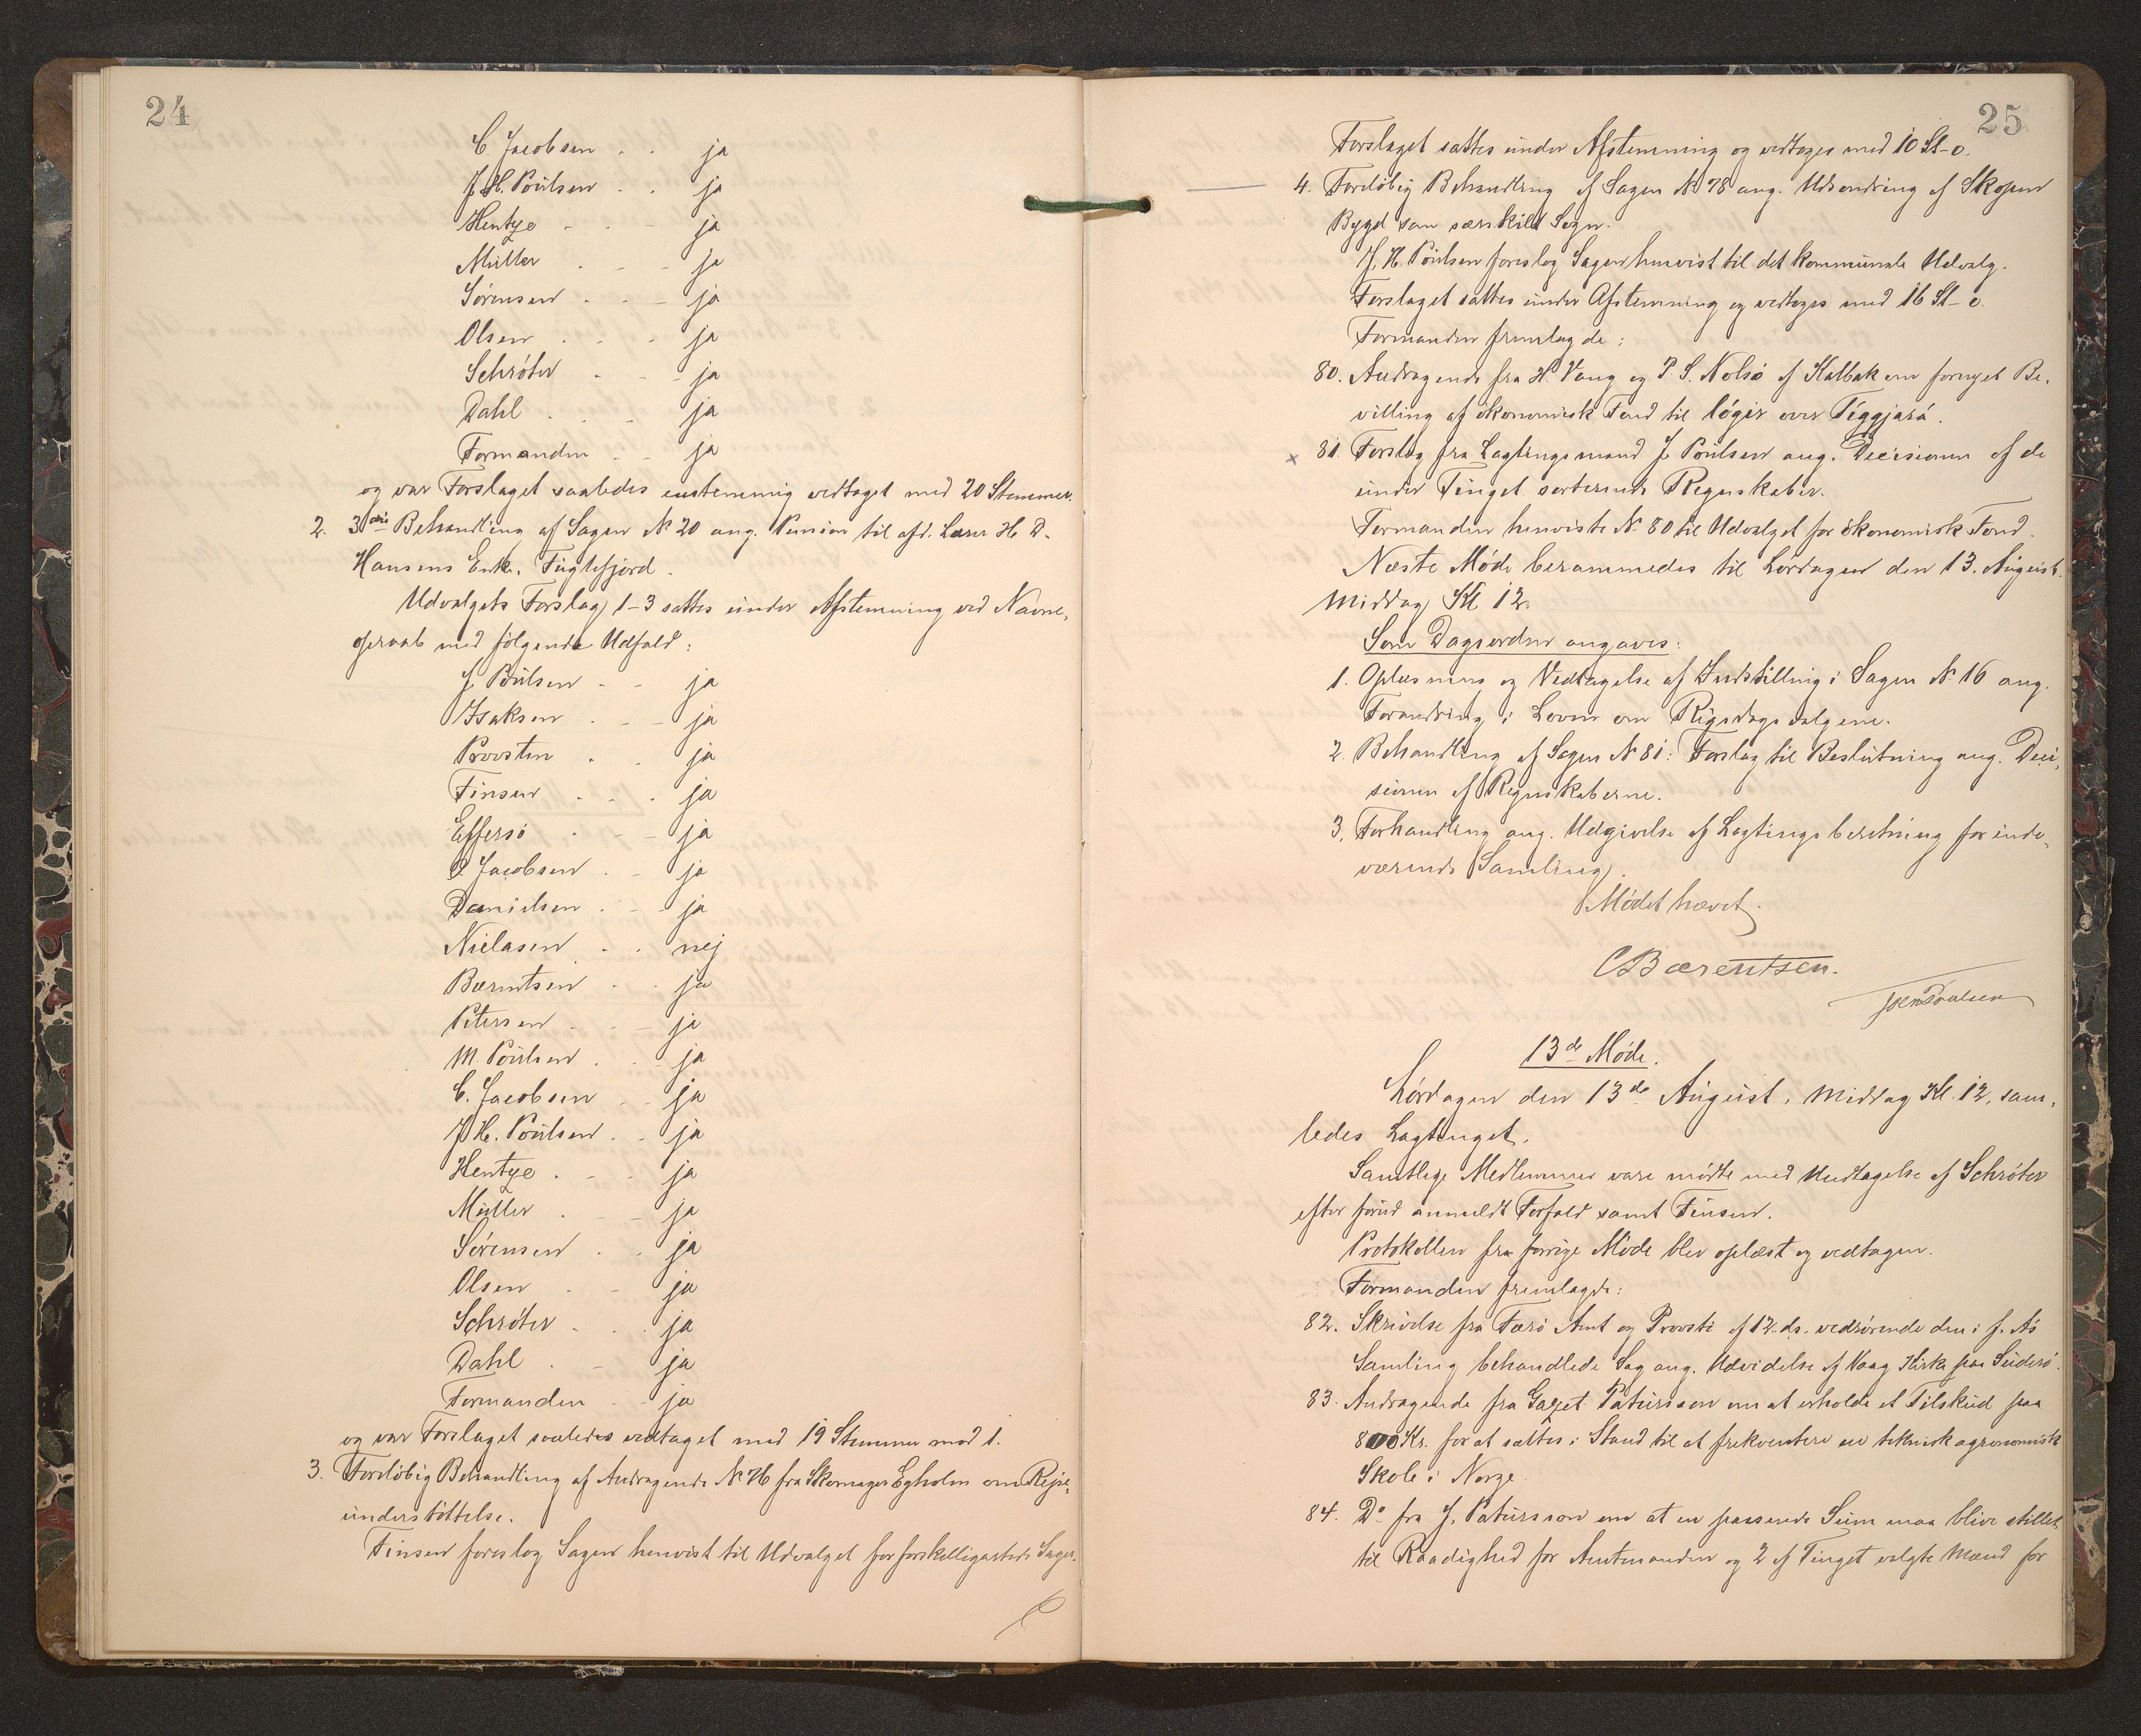 24
C Jacobsen . . ja
J. H. Poulsen . . ja
Hentze - . - ja
Müller . - - ja
Sørensen . . - ja
Olsen . . . ja
Schrøter - - - ja
Dahl . . . ja
Formanden - - ja
og var Forslaget saaledes enstemmig vedtaget med 20 Stemmer.
2. 3die Behandling af Sagen No 20 ang. Pension til afd. Lærer H. D.
Hansens Enke, Fuglefjord.
Udvalgets Forslag 1-3 sattes under Afstemning ved Navne,
opraab med følgende Udfald:
J. Poulsen - - ja
Isaksen . - - ja
Provsten . . ja
Finsen . . . ja
Effersø . - - ja
Jacobsen . - ja
Danielsen . - - ja
Nielasen . . nej
Bærentsen . . ja
Petersen . . - ja
M. Poulsen . . ja
C. Jacobsen - - ja
J H. Poulsen . - ja
Hentze . - - ja
Müller . - - ja
Sørensen . . ja
Olsen . - ja
Schrøter - . . ja
Dahl . - ja
Formanden - ja
og var Forslaget saaledes vedtaget med 19 Stemmer mod 1.
3. Foreløbig Behandling af Andragende No 76 fra Skomager Egholm om Rejse,
understøttelse.
Finsen foreslog Sagen henvist til Udvalget for forskelligartede Sager.
25
Forslaget sattes under Afstemning og vedtoges med 10 St-0.
4. Foreløbig Behandling af Sagen No 78 ang. Udsondring af Skopun
Bygd som særskild Sogn.
J. H. Poulsen foreslog Sagen henvist til det kommunale Udvalg.
Forslaget sattes under Afstemning og vedtoges med 16 St-0.
Formanden fremlagde:
80. Andragende fra H. Vang og P. S. Nolsø af Kalbak om fornyet Be,
villing af økonomisk Fond til løgir over Tiggjará.
x 81. Forslag fra Lagtingsmand J. Poulsen ang. Decisionen af de
under Tinget sorterende Regnskaber.
Formanden henviste No 80 til Udvalget for økonomisk Fond.
Næste Møde berammedes til Lørdagen den 13. August.
Middag Kl 12.
Som Dagsorden angaves:
1. Oplæsning og Vedtagelse af Indstilling i Sagen No 16 ang.
Forandring i Loven om Rigsdagsvalgene.
2. Behandling af Sagen No 81: Forslag til Beslutning ang. Deci,
sionen af Regnskaberne.
3. Forhandling ang. Udgivelse af Lagtingsberetning for inde,
værende Samling.
Mødet hævet.
C Bærentsen.
Poulsen
13de Møde.
Lørdagen den 13de August, Middag Kl. 12, sam,
ledes Lagtinget.
Samtlige Medlemmer vare mødte med Undtagelse af Schrøter
efter forud anmeldt Forfald samt Finsen.
Protokollen fra forrige Møde blev oplæst og vedtagen.
Formanden fremlagde:
82. Skrivelse fra Færø Amt og Provsti af 12. ds. vedrørende den i f. A's
Samling behandlede Sag ang. Udvidelse af Vaag Kirke paa Suderø.
83. Andragende fra Gazet Patursson om at erholde et Tilskud paa
800 Kr. for at sættes i Stand til at frekventere en teknisk agronomisk
Skole i Norge.
84. Do fra J. Patursson om at en passende Sum maa blive stillet
til Raadighed for Amtmanden og 2 af Tinget valgte Mænd for